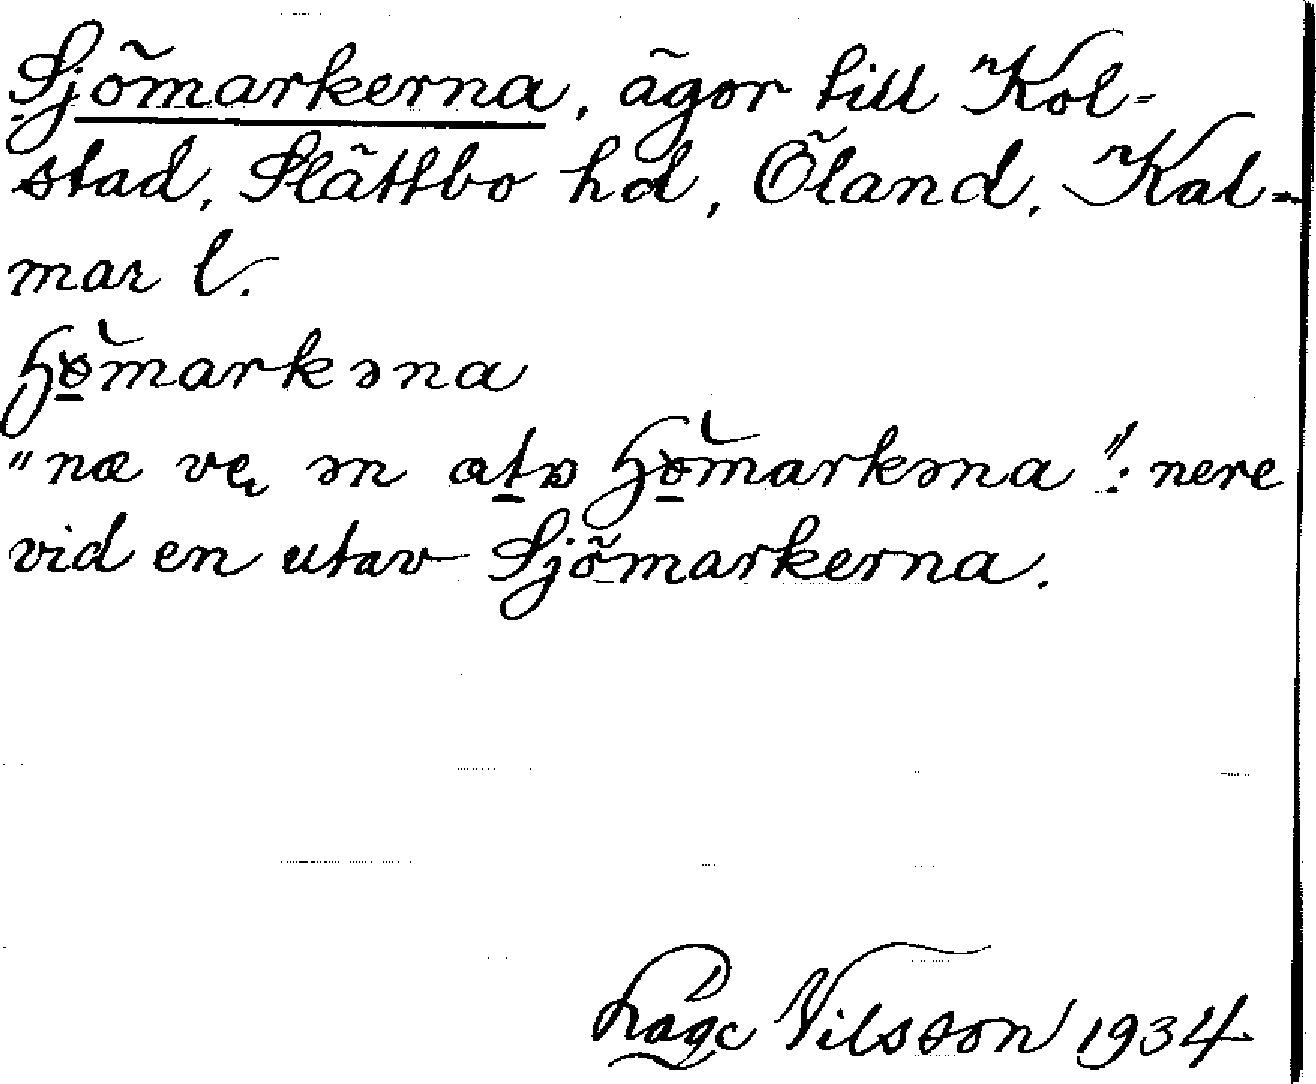 Sjömarkerna, ägor till Kol-
stad, Slättbo hd, Öland, Kal-
mar l.
ɧø̠̆markəna
"næ ve̢ ən at̠ɒ ɧø̠̆markəna": nere
vid en utav Sjömarkerna.
Nilsson 1934